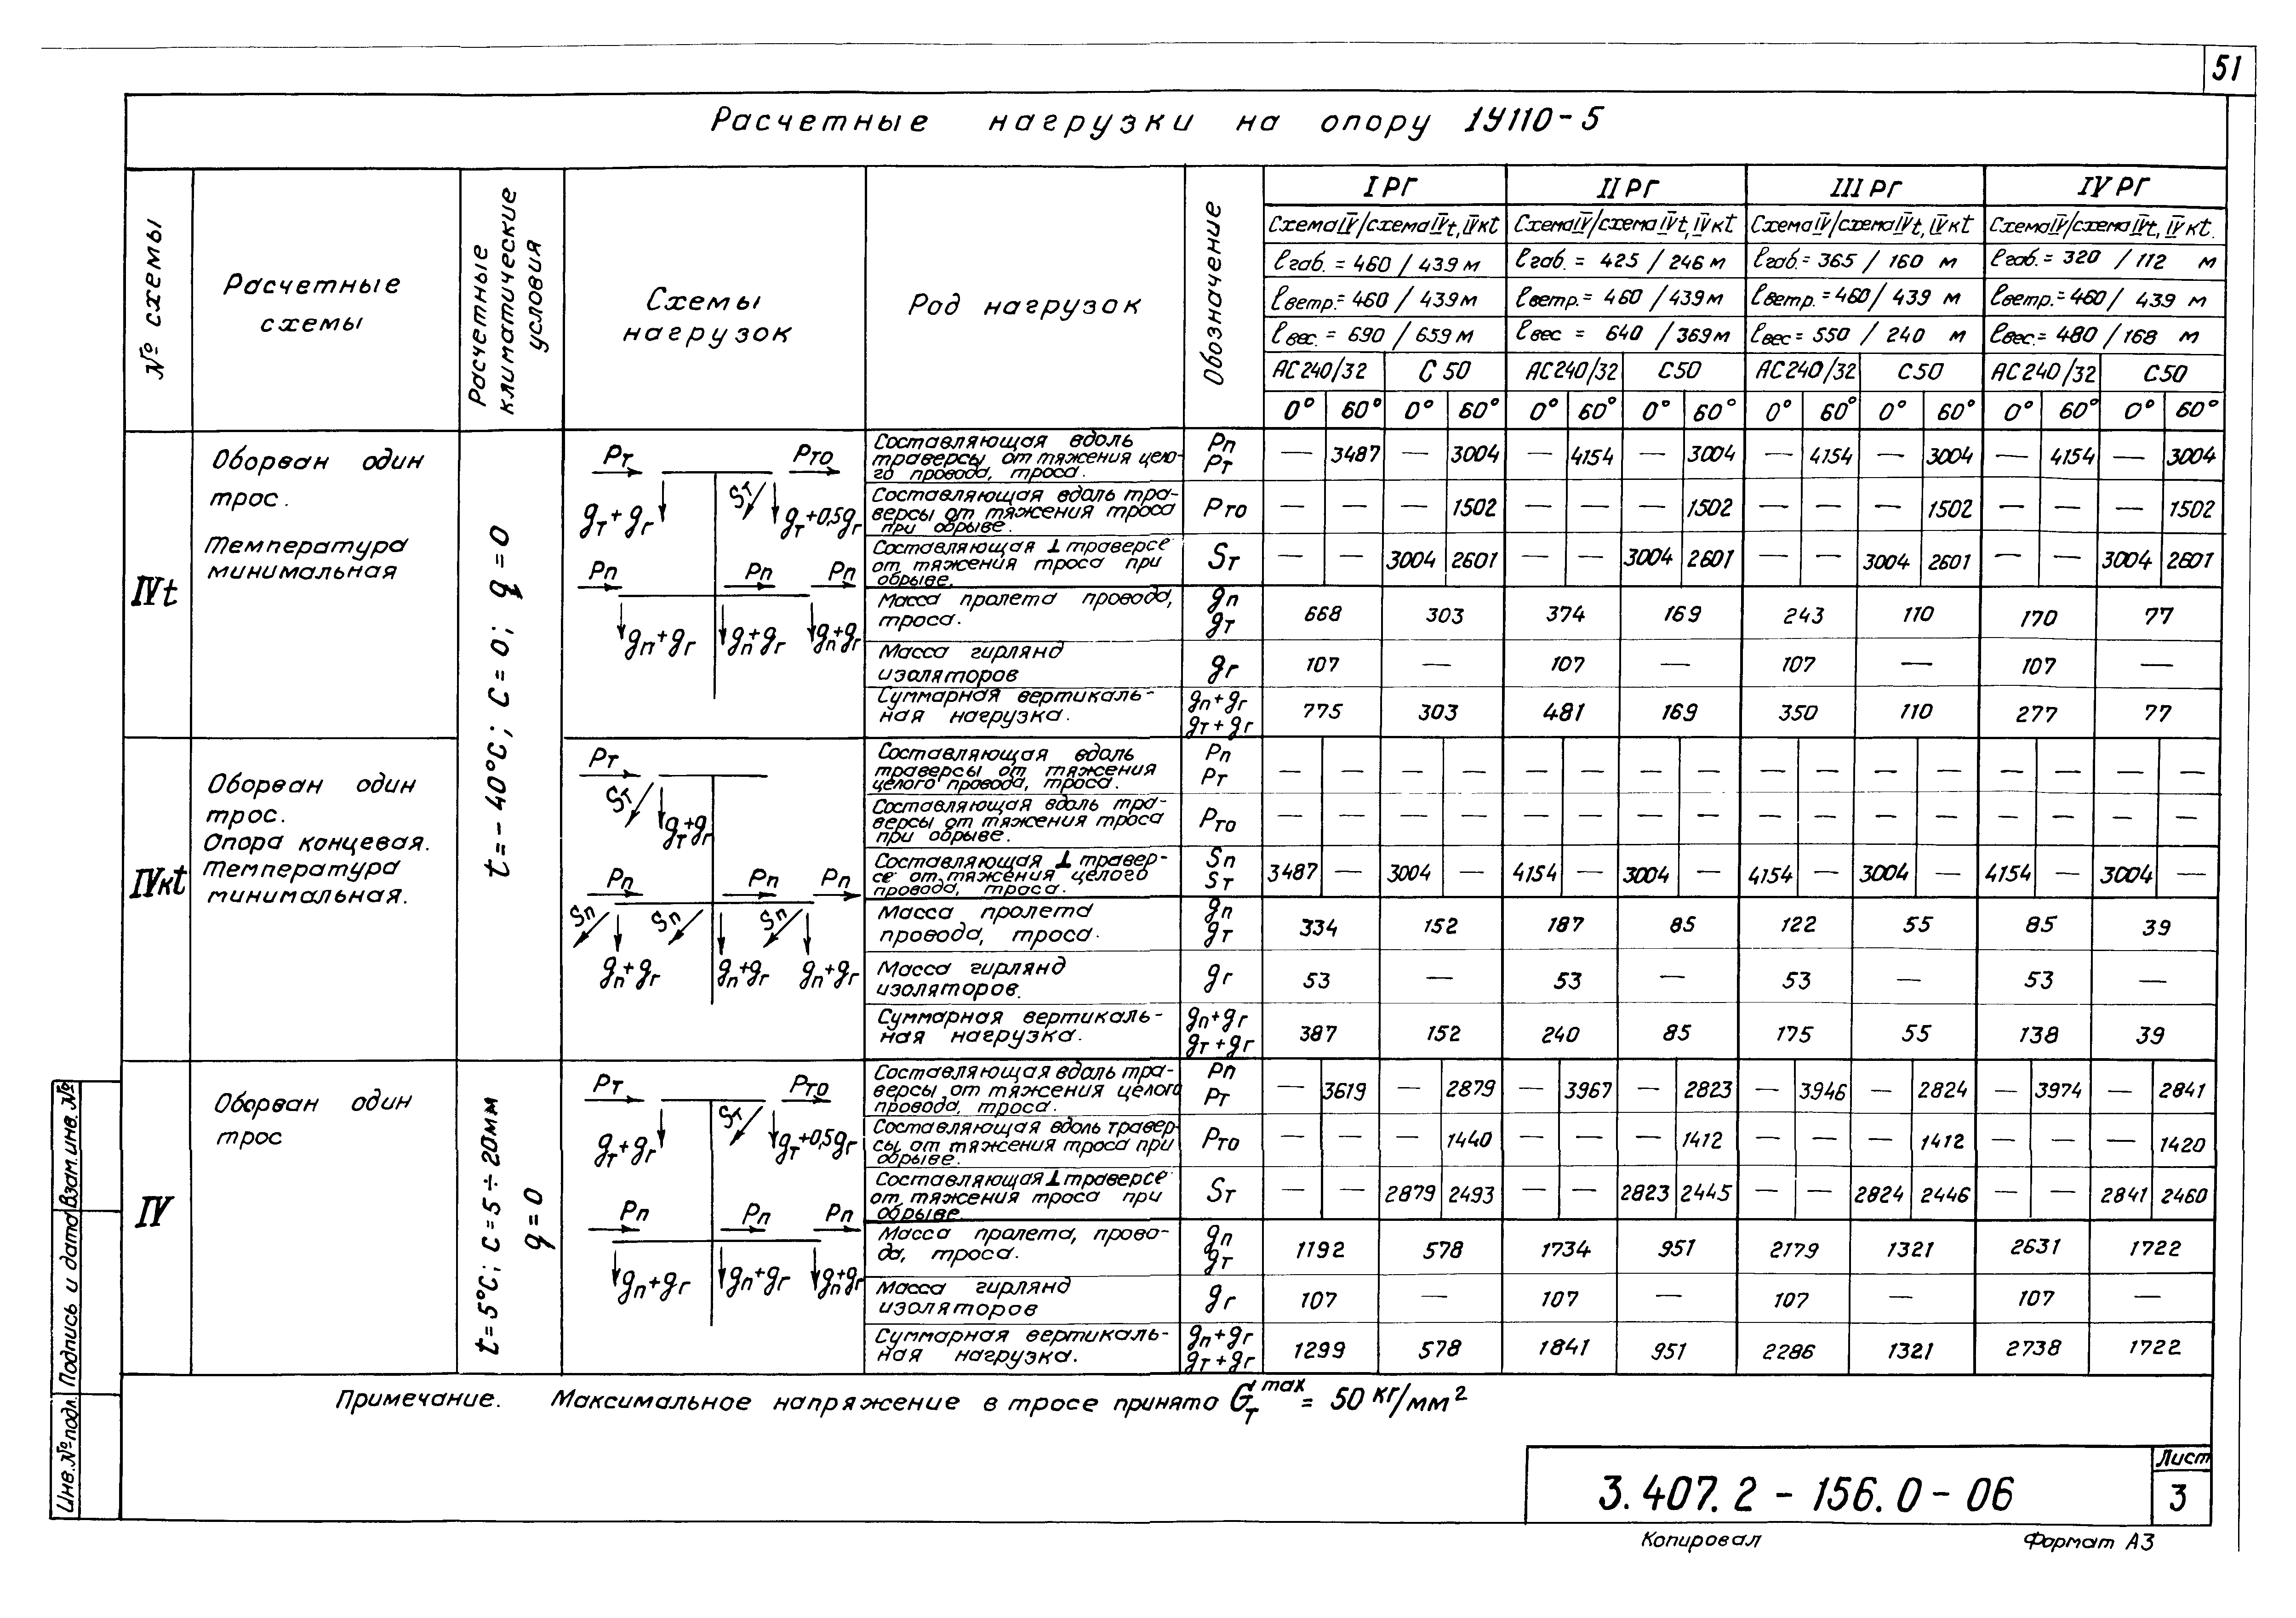 51
Расчетные нагрузки на опору 1У110-5
№ схемы
Расчетные схемы
Расчетные климатические условия
Схемы нагрузок
Род нагрузок
Обозначение
I РГ II РГ III РГ IV РГ
Схема IV/схема IVt, IVкt Схема IV/схема IVt, IVкt Схема IV/схема IVt, IVкt Схема IV/схема IVt, IVкt.
ℓгаб. = 460 / 439 м ℓгаб. = 425 / 246 м ℓгаб. = 365 / 160 м ℓгаб. = 320 / 112 м
ℓветр. = 460 / 439 м ℓветр. = 460 / 439 м ℓветр. = 460 / 439 м ℓветр. = 460 / 439 м
ℓвес. = 690 / 659 м ℓвес = 640 / 369 м ℓвес = 550 / 240 м ℓвес. = 480 / 168 м
АС 240/32 С 50 АС 240/32 С50 АС 240/32 С50 АС 240/32 С50
0° 60° 0° 60° 0° 60° 0° 60° 0° 60° 0° 60° 0° 60° 0° 60°
IVt
Оборван один
трос.
Температура
минимальная
t = - 40°C; C = 0; q = 0
Рт Рто
Sт
gт + gг gт+0,5gг
Рп Рп Рп
gп+gг gп+gг gп+gг
Составляющая вдоль
траверсы от тяжения цело-
го провода, троса.
Рп
Рт
— 3487 — 3004 — 4154 — 3004 — 4154 — 3004 — 4154 — 3004
Составляющая вдоль тра-
версы от тяжения троса
при обрыве.
Рто
— — — 1502 — — — 1502 — — — 1502 — — — 1502
Составляющая ⊥ траверсе
от тяжения троса при
обрыве.
Sт
— — 3004 2601 — — 3004 2601 — — 3004 2601 — — 3004 2601
Масса пролета провода,
троса.
gп
gт
668 303 374 169 243 110 170 77
Масса гирлянд
изоляторов
gг
107 — 107 — 107 — 107 —
Суммарная вертикаль-
ная нагрузка.
gп + gг
gт + gг
775 303 481 169 350 110 277 77
IVкt
Оборван один
трос.
Опора концевая.
Температура
минимальная.
Рт
Sт
gт+gг
Рп Рп Рп
Sп Sп Sп
gп+gг gп+gг gп+gг
Составляющая вдоль
траверсы от тяжения
целого провода, троса.
Рп
Рт
— — — — — — — — — — — — — — — —
Составляющая вдоль тра-
версы от тяжения троса
при обрыве.
Рто
— — — — — — — — — — — — — — — —
Составляющая ⊥ травер-
се от тяжения целого
провода, троса.
Sп
Sт
3487 — 3004 — 4154 — 3004 — 4154 — 3004 — 4154 — 3004 —
Масса пролета
провода, троса.
gп
gт
334 152 187 85 122 55 85 39
Масса гирлянд
изоляторов.
gг
53 — 53 — 53 — 53 —
Суммарная вертикаль-
ная нагрузка.
gп + gг
gт + gг
387 152 240 85 175 55 138 39
IV
Оборван один
трос
t = 5°C; C = 5 ÷ 20мм
q = 0
Рт Рто
Sт
gт + gг gт+0,5gг
Рп Рп Рп
gп+gг gп+gг gп+gг
Составляющая вдоль тра-
версы от тяжения целого
провода, троса.
Рп
Рт
— 3619 — 2879 — 3967 — 2823 — 3946 — 2824 — 3974 — 2841
Составляющая вдоль травер-
сы от тяжения троса при
обрыве.
Рто
— — — 1440 — — — 1412 — — — 1412 — — — 1420
Составляющая ⊥ траверсе
от тяжения троса при
обрыве.
Sт
— — 2879 2493 — — 2823 2445 — — 2824 2446 — — 2841 2460
Масса пролета, прово-
да, троса.
gп
gт
1192 578 1734 951 2179 1321 2631 1722
Масса гирлянд
изоляторов
gг
107 — 107 — 107 — 107 —
Суммарная вертикаль-
ная нагрузка.
gп + gг
gт + gг
1299 578 1841 951 2286 1321 2738 1722
Примечание. Максимальное напряжение в тросе принято Gт max = 50 кг/мм²
Инв. № подл. Подпись и дата Взам. инв. №
3.407.2 - 156.0 - 06
Лист
3
Копировал Формат А3